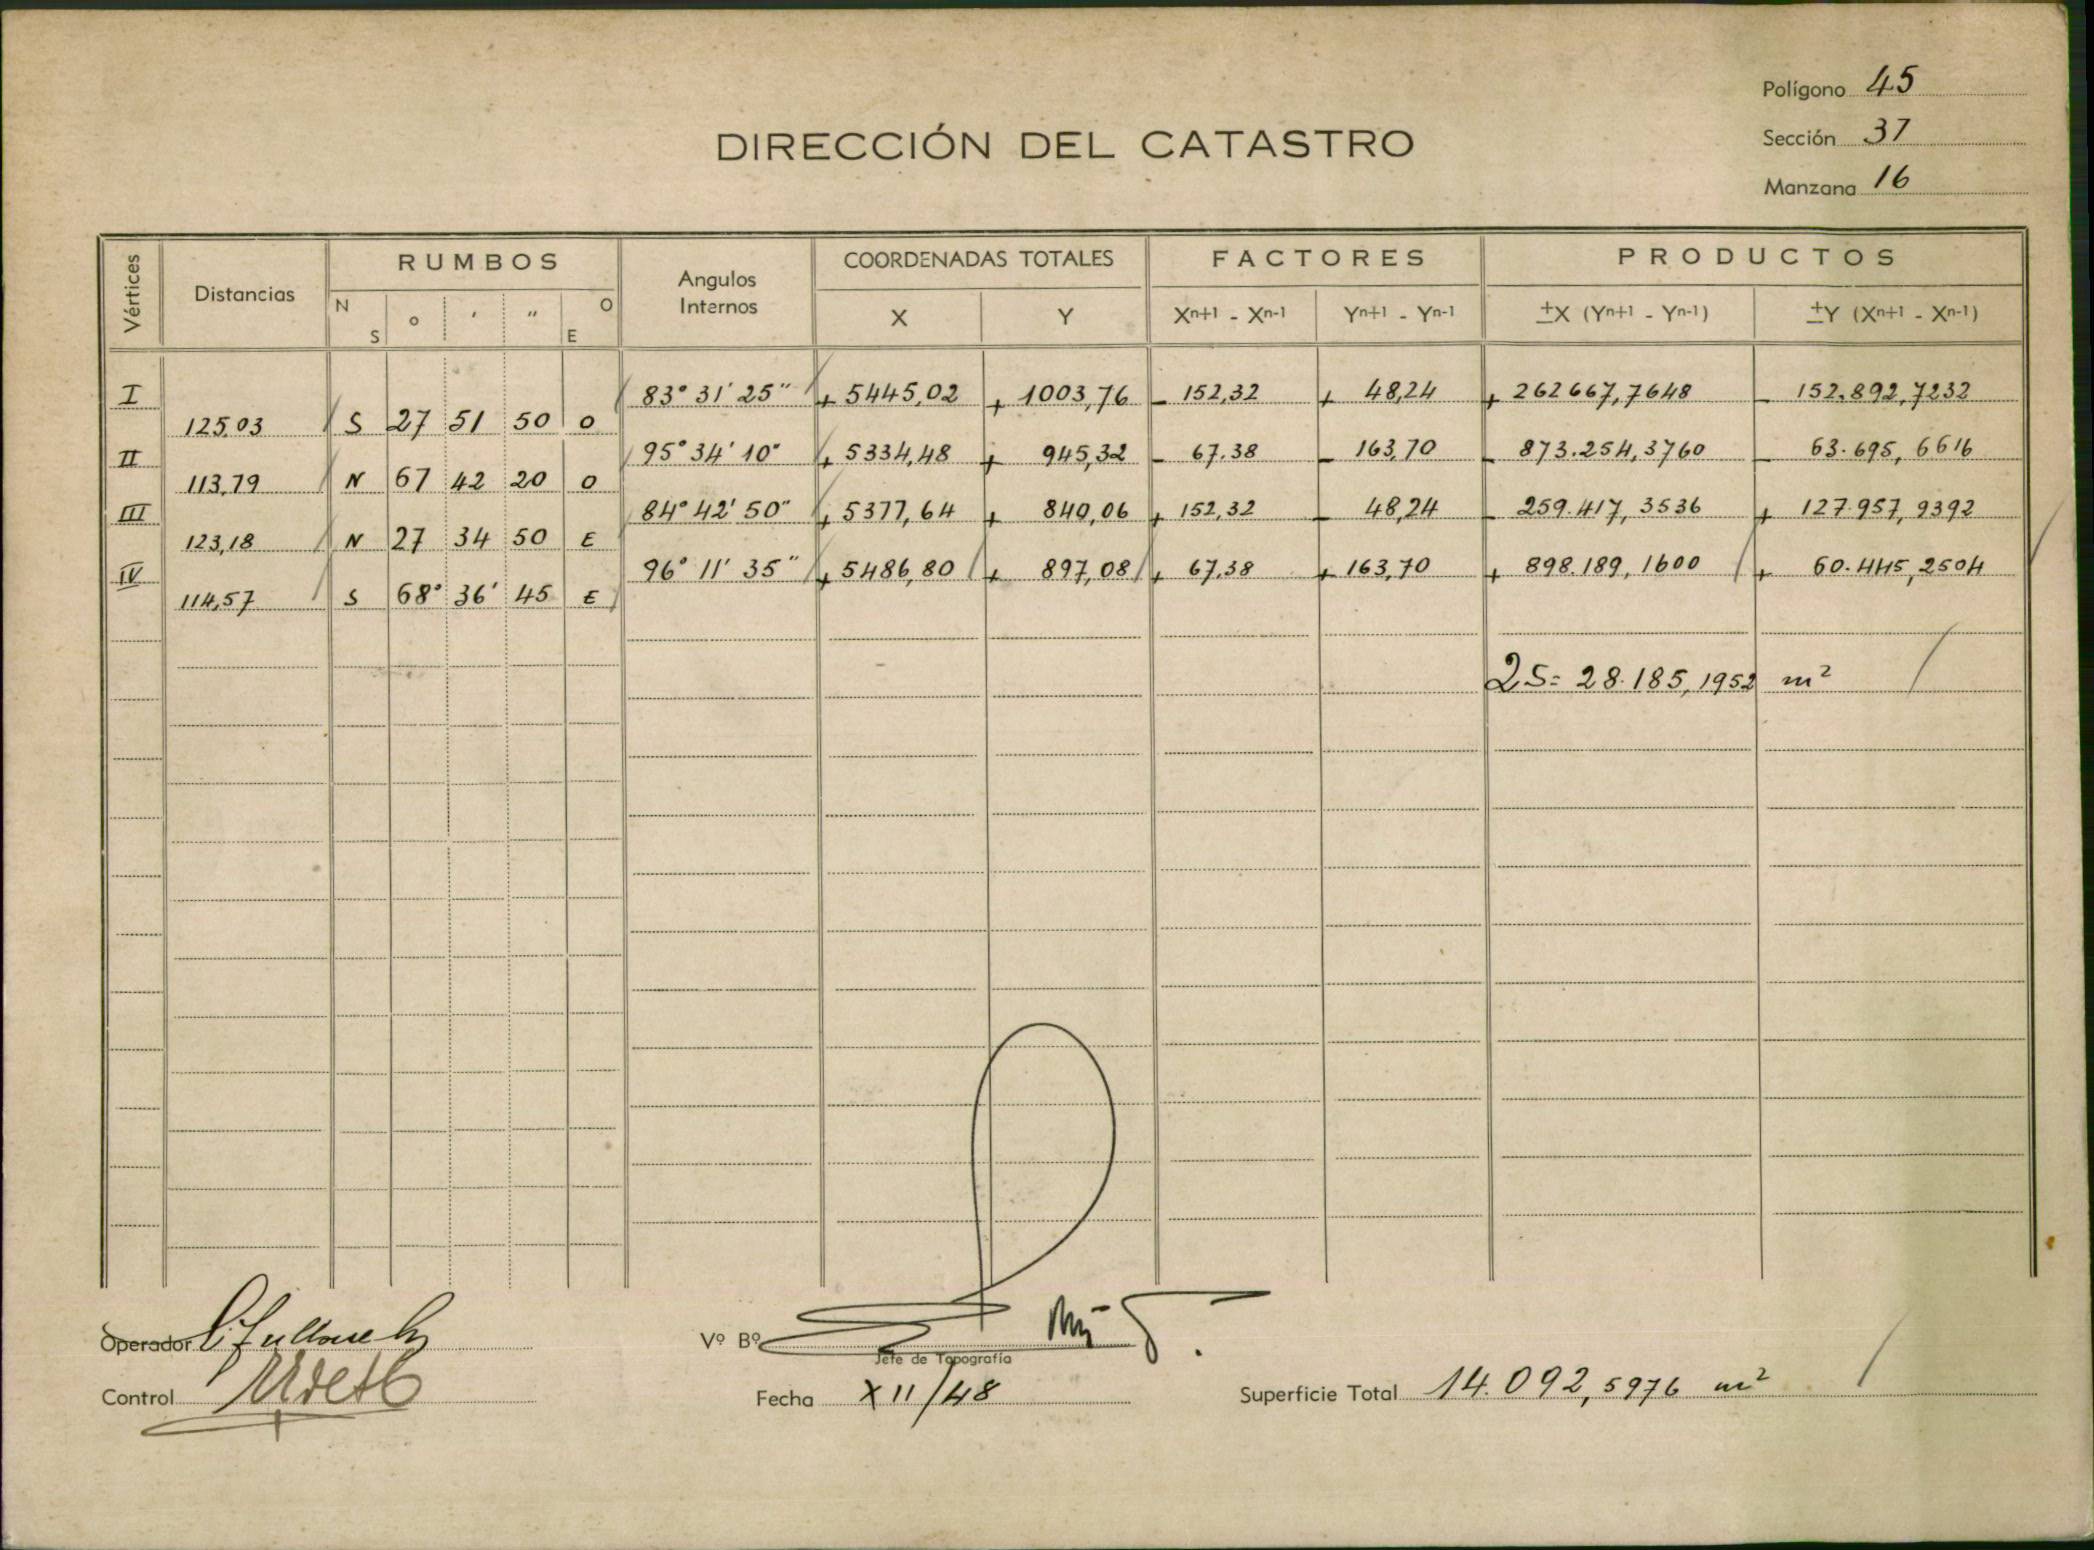 Polígono 45
DIRECCIÓN DEL CATASTRO
Sección 37
Manzana 16
Vértices Distancias RUMBOS Angulos Internos COORDENADAS TOTALES FACTORES PRODUCTOS
N S ° ' " O E X Y Xn+1 - Xn-1 Yn+1 - Yn-1 ±X (Yn+1 - Yn-1) ±Y (Xn+1 - Xn-1)
I 83° 31' 25" + 5445,02 + 1003,76 - 152,32 + 48,24 + 262667,7648 - 152.892,7232
125,03 S 27 51 50 O
II 95° 34' 10" + 5334,48 + 945,32 - 67.38 - 163,70 - 873.254,3760 - 63.695,6616
113,79 N 67 42 20 O
III 84° 42' 50" + 5377,64 + 840,06 + 152,32 - 48,24 - 259.417,3536 + 127.957,9392
123,18 N 27 34 50 E
IV 96° 11' 35" + 5486,80 + 897,08 + 67.38 + 163,70 + 898.189,1600 + 60.445,2504
114,57 S 68° 36' 45 E
2S= 28.185,1952 m²
Operador
Vº Bº
Jefe de Topografía
Control
Fecha XII/48
Superficie Total 14.092,5976 m²